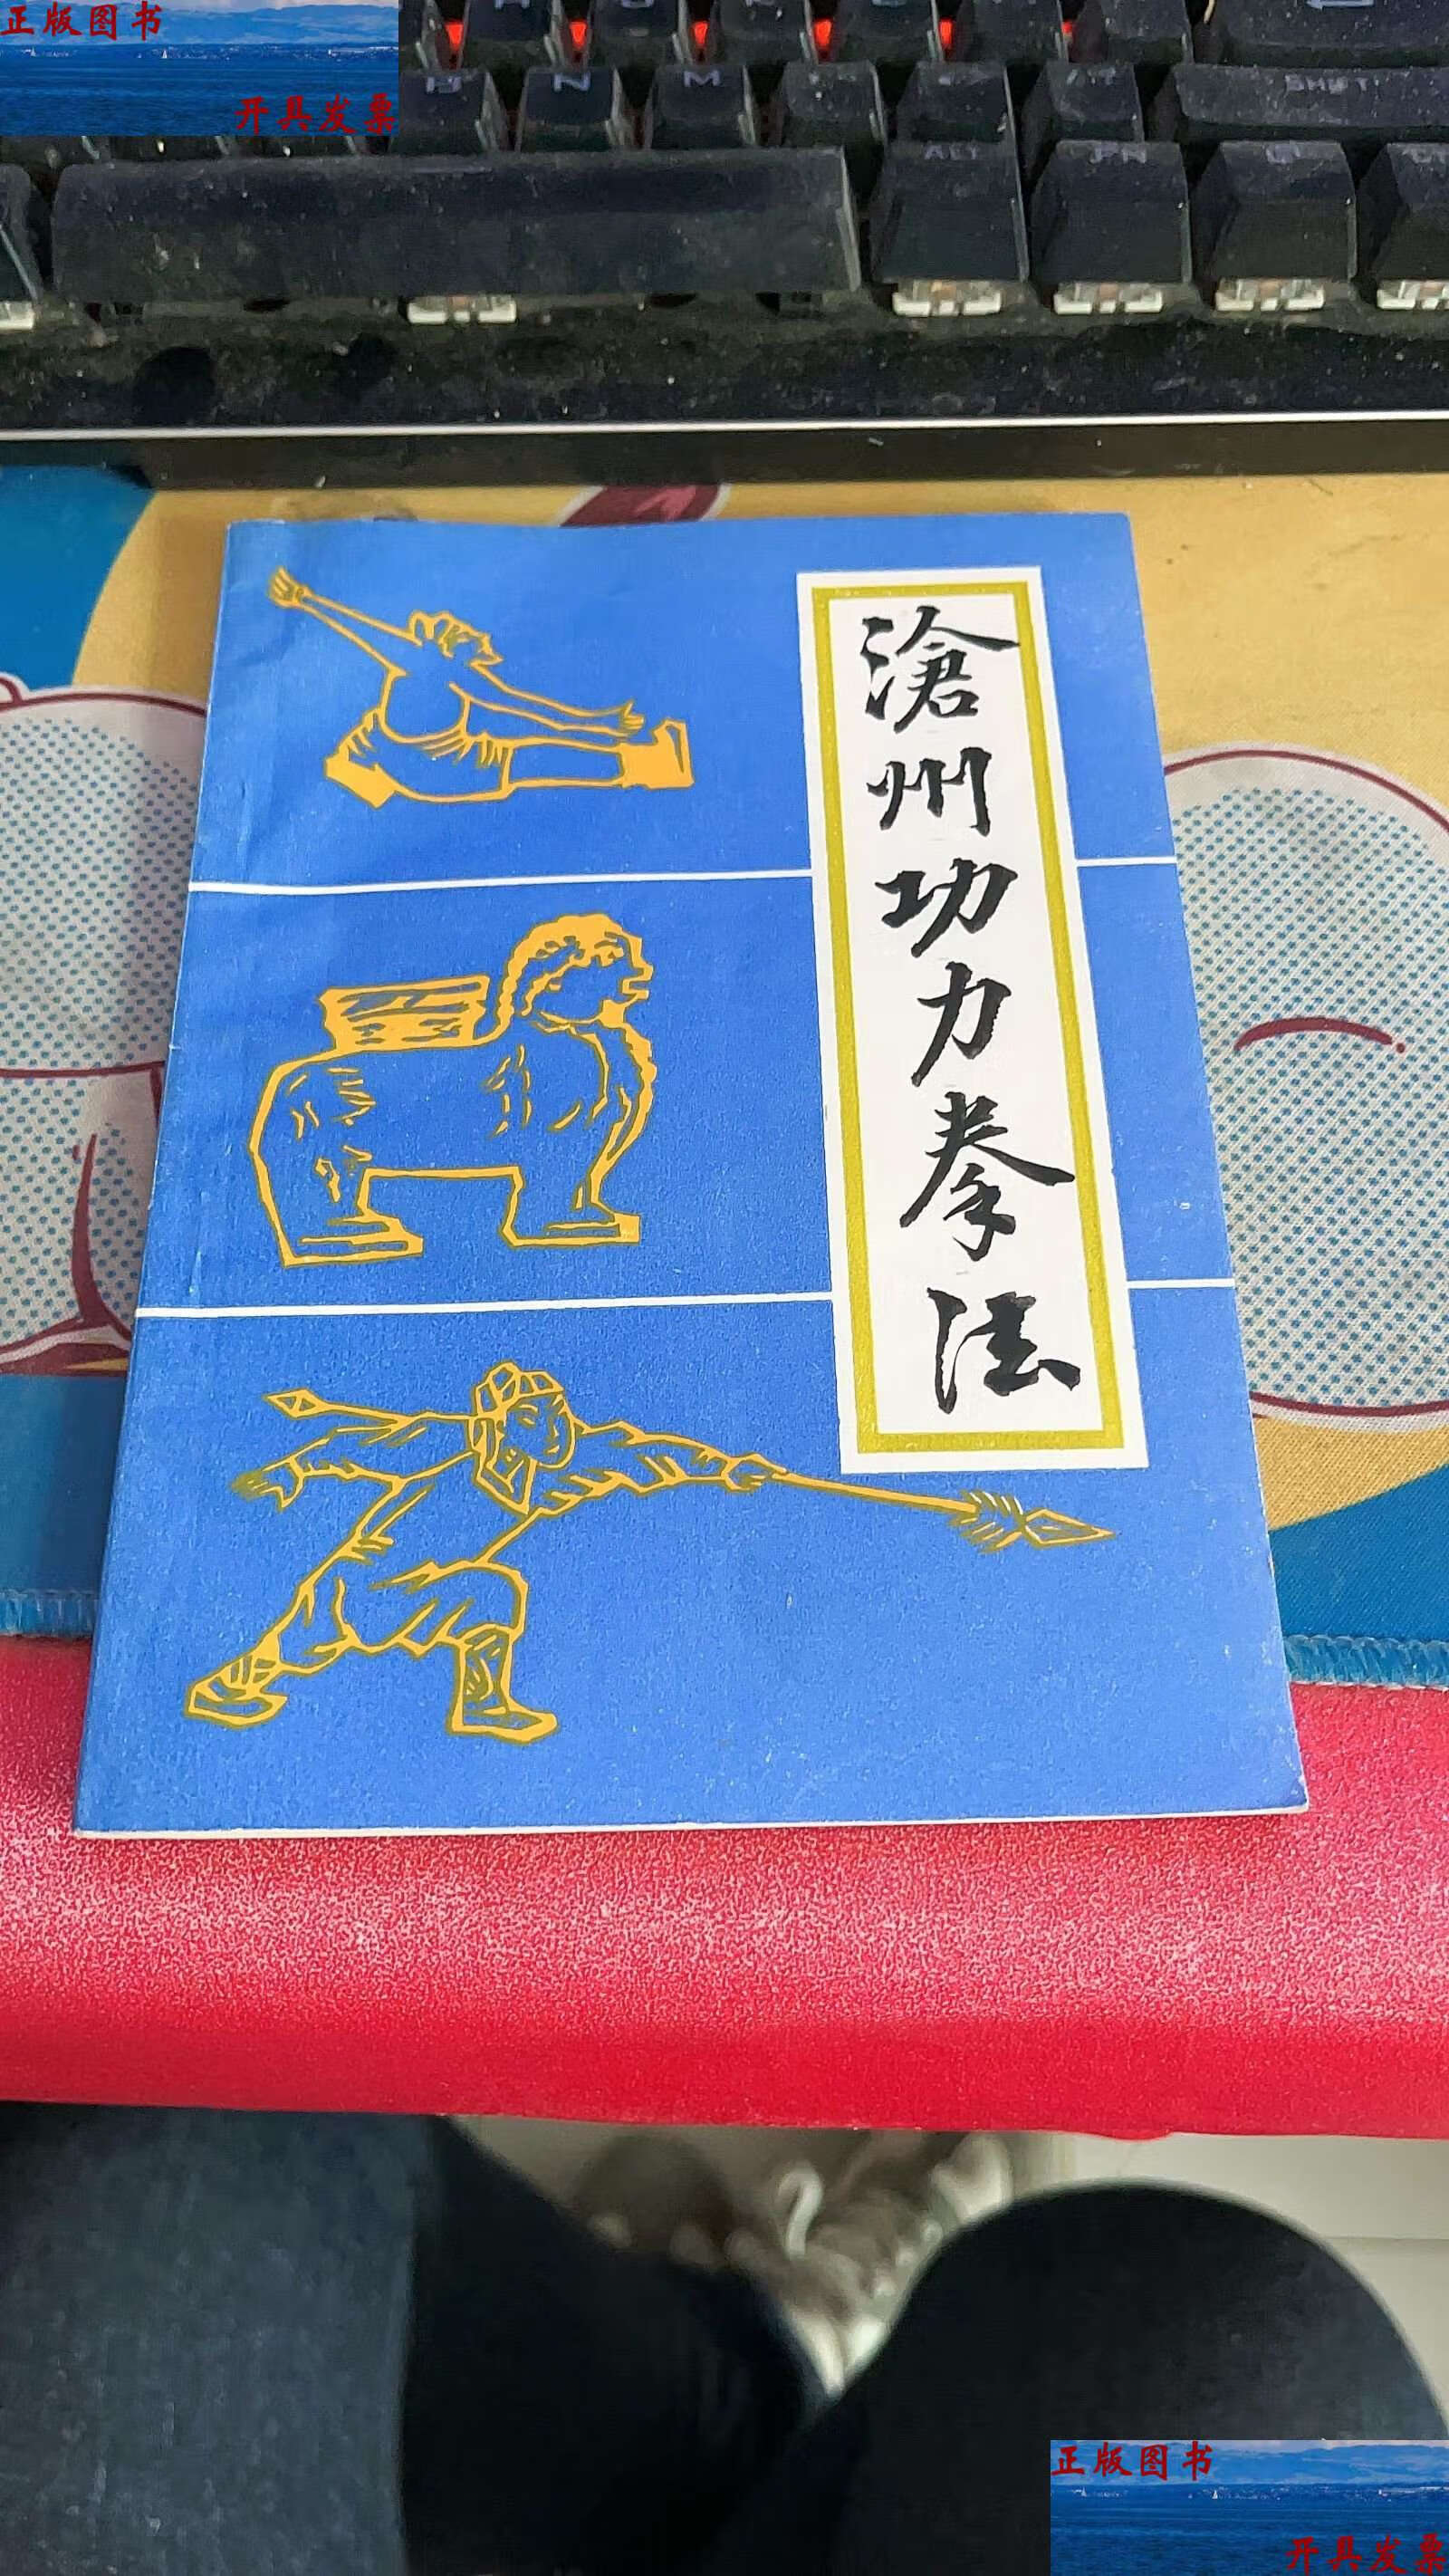 正版图书
开具发票
N M
SHIFT
ALT
滄州功力拳法
正版图书
开具发票